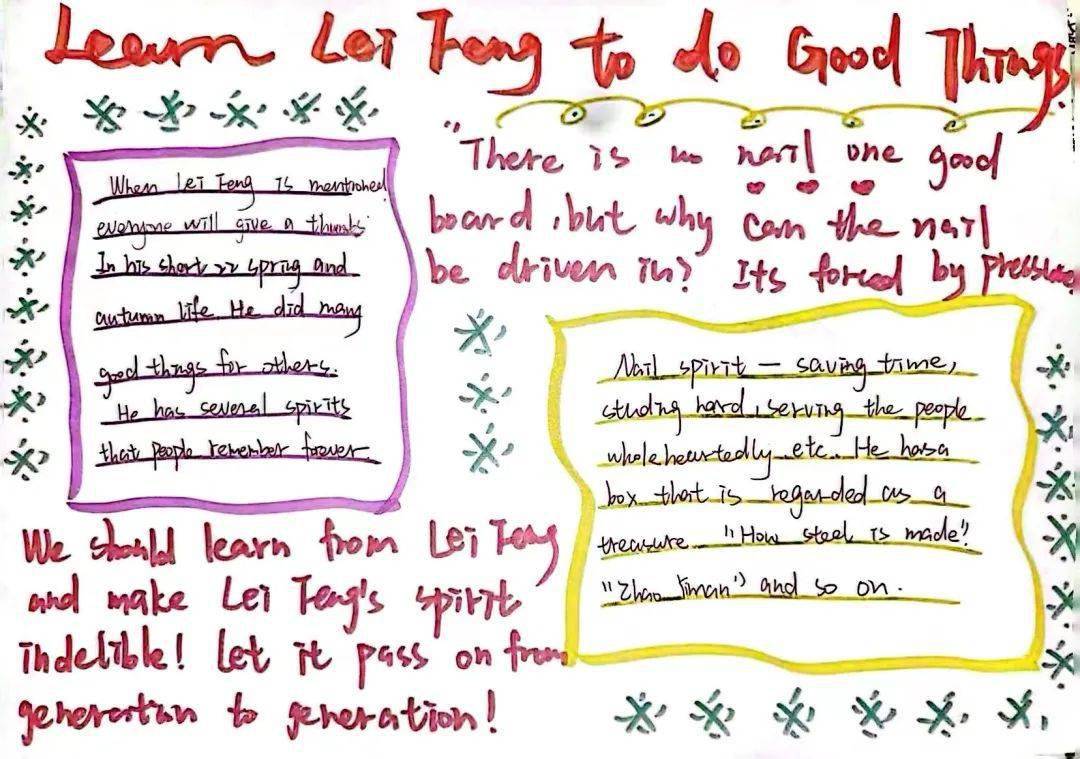 Learn Lei Feng to do Good Things
When Lei Feng is mentioned
everyone will give a thumbs
In his short 22 spring and
autumn life. He did many
good things for others.
He has several spirits
that people remember forever.
"There is no nail one good
board, but why can the nail
be driven in? Its forced by pressure
Nail spirit — saving time,
studing hard, serving the people
wholeheartedly etc.. He has a
box that is regarded as a
treasure "How steel is made"!
"Zhao Yiman") and so on.
We should learn from Lei Feng
and make Lei Feng's spirit
indelible! Let it pass on from
generation to generation!